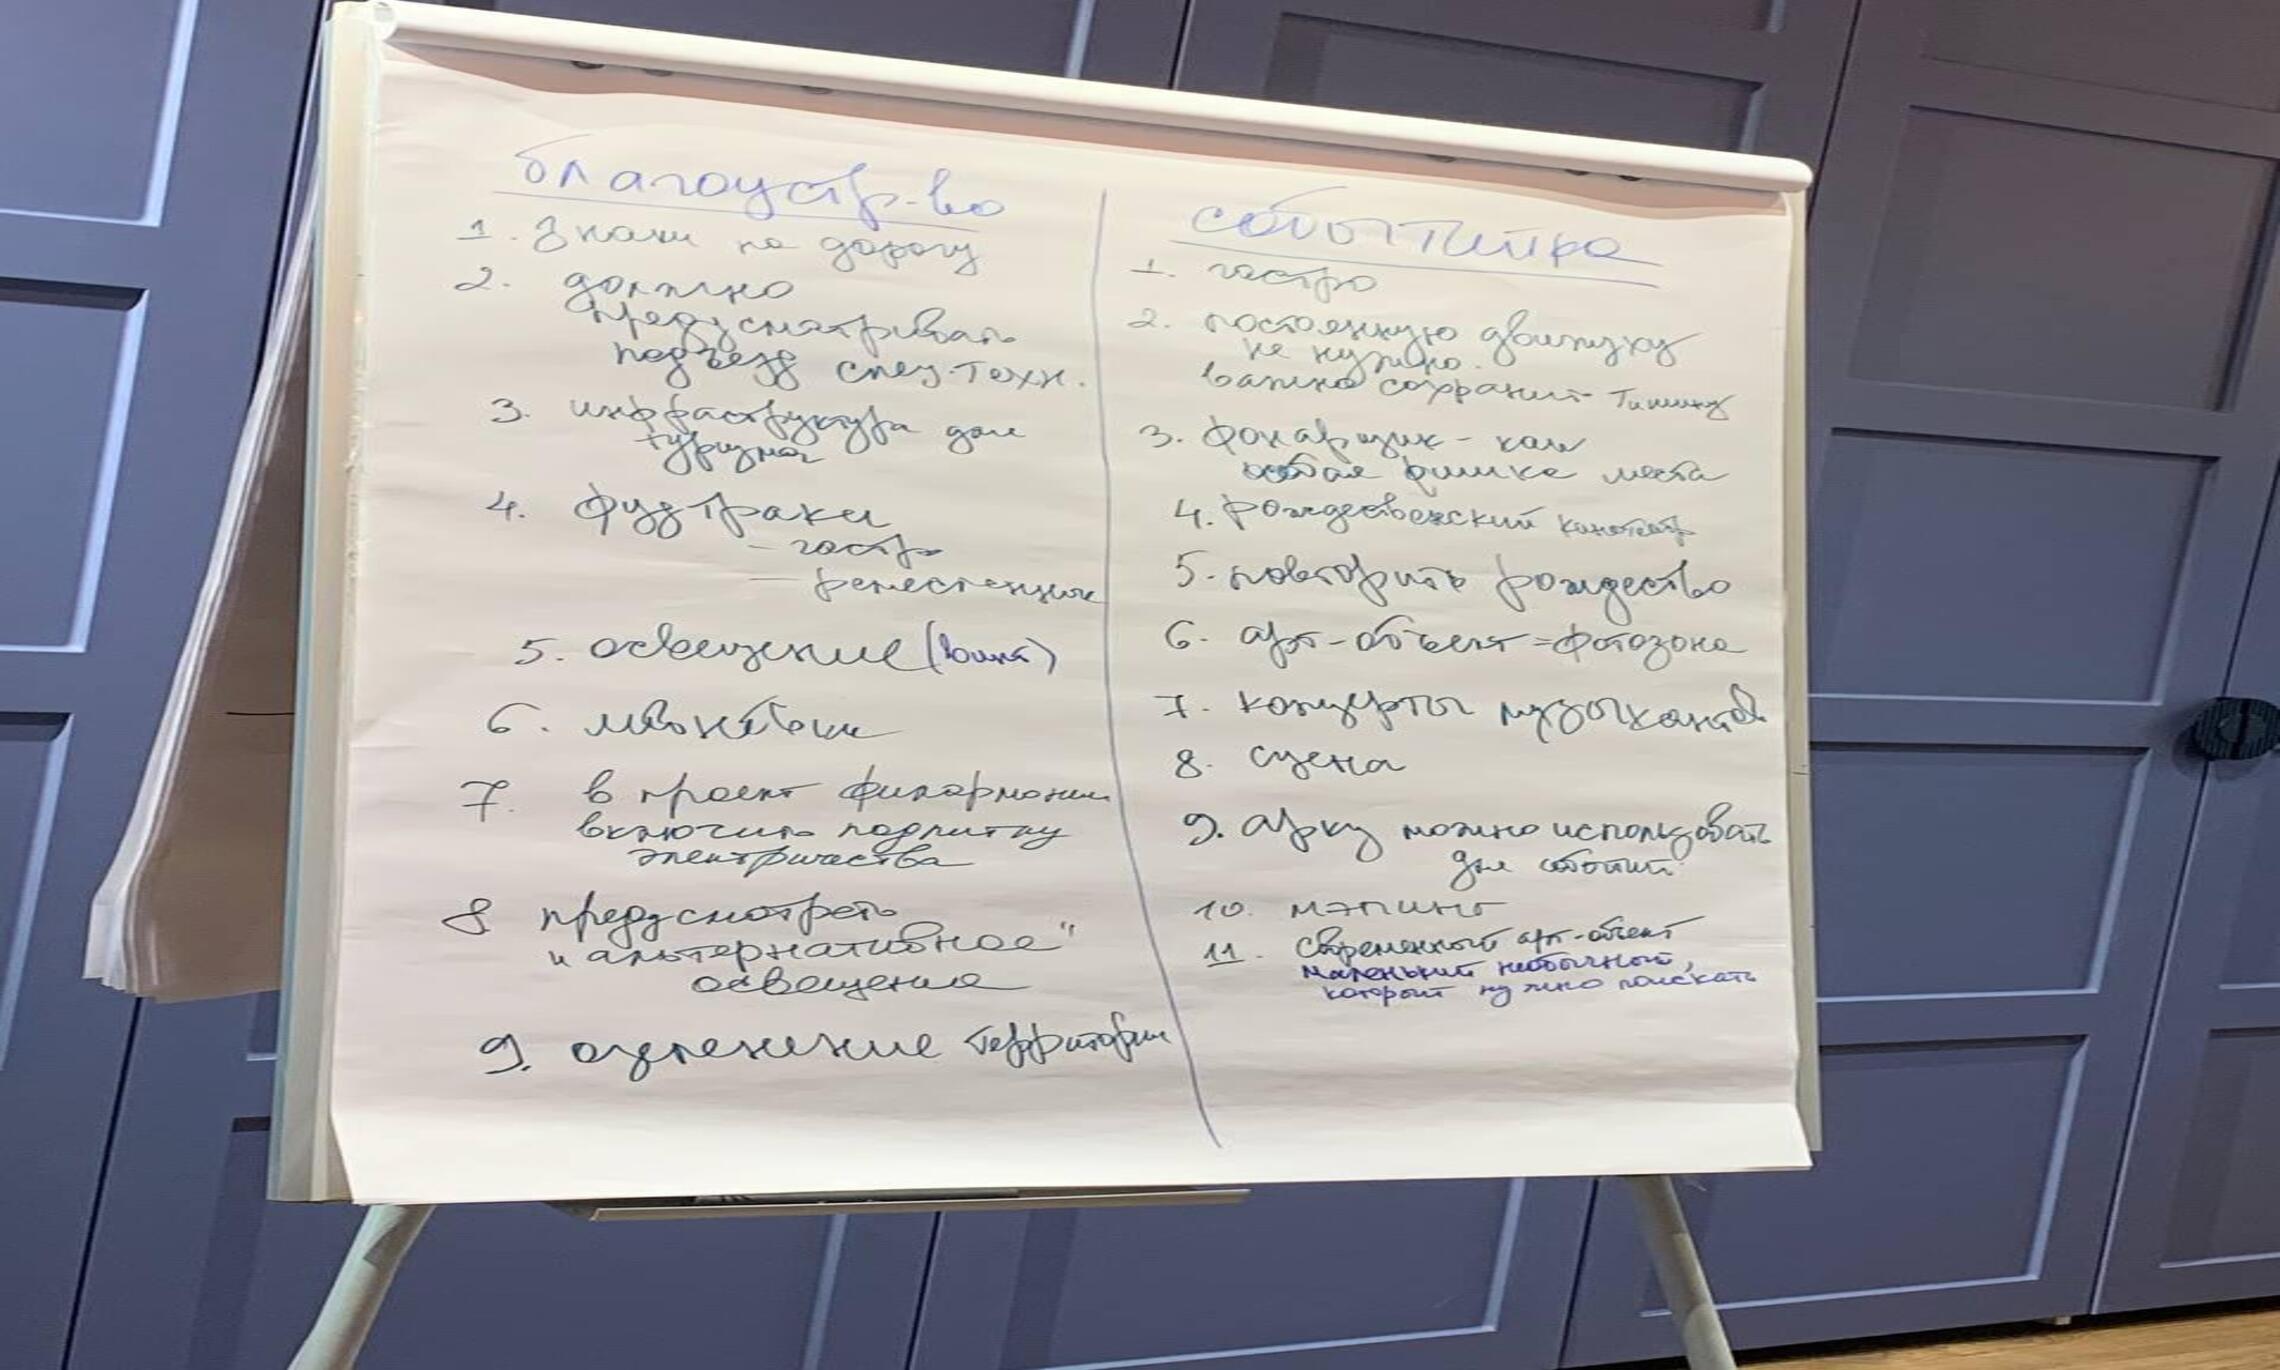 благоустр-во
1. Знаки на дорогу
2. должно
предусматривать
подъезд спец.техн.
3. инфраструктура для
туризма
4. фудтраки
- гастро
- ремесленник
5. освещение
6.
7. в проект филармонии
включить подпитку
электричества
8 предусмотреть
"альтернативное"
освещение
9. озеленение территории
событийка
1. гастро
2. постоянную движуху
не нужно.
важно сохранить тишину
3. фонарщик - как
особая фишка места
4. рождественский кинотеатр
5. повторить рождество
6. арт-объект = фотозона
7. концерты музыкантов
8. сцена
9. арку можно использовать
для событий
10. мэпинг
11. современный арт-объект
маленький необычный,
который нужно поискать